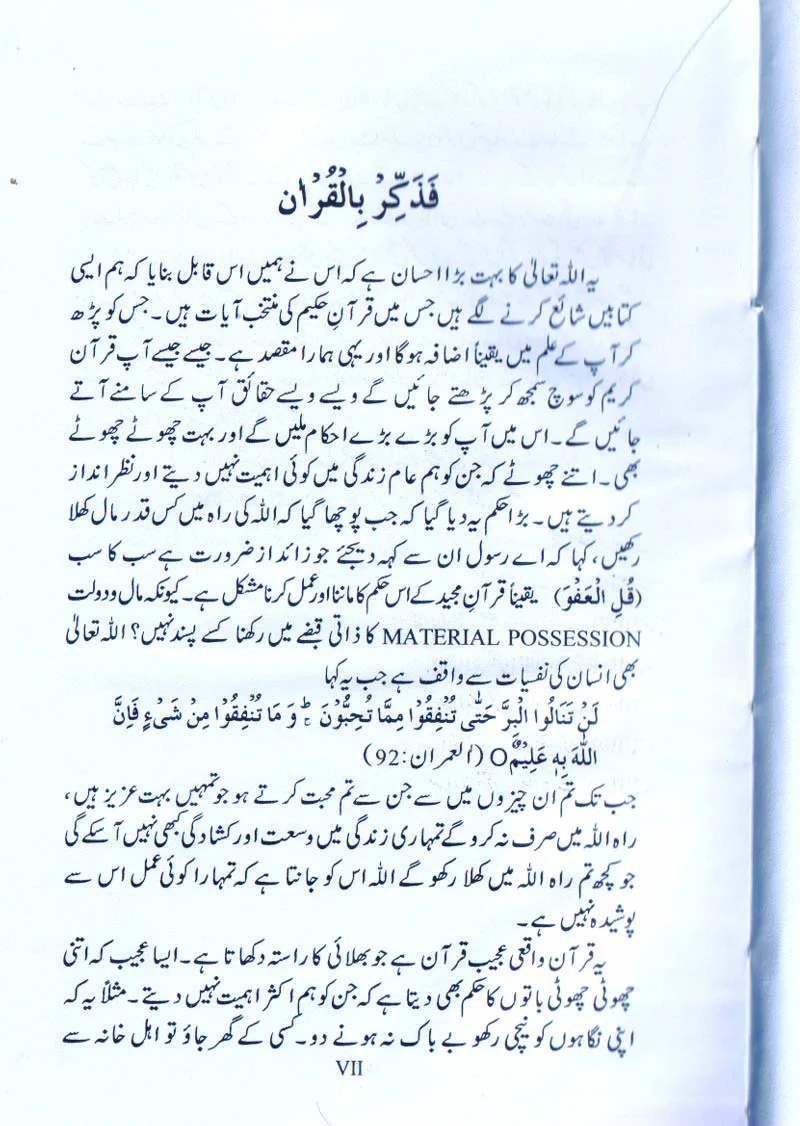 فَذَكِّرْ بِالْقُرْاٰن
یہ اللہ تعالیٰ کا بہت بڑا احسان ہے کہ اس نے ہمیں اس قابل بنایا کہ ہم ایسی
کتابیں شائع کرنے لگے ہیں جس میں قرآنِ حکیم کی منتخب آیات ہیں۔ جس کو پڑھ
کر آپ کے علم میں یقیناً اضافہ ہوگا اور یہی ہمارا مقصد ہے۔ جیسے جیسے آپ قرآن
کریم کو سوچ سمجھ کر پڑھتے جائیں گے ویسے ویسے حقائق آپ کے سامنے آتے
جائیں گے۔ اس میں آپ کو بڑے بڑے احکام ملیں گے اور بہت چھوٹے چھوٹے
بھی۔ اتنے چھوٹے کہ جن کو ہم عام زندگی میں کوئی اہمیت نہیں دیتے اور نظر انداز
کر دیتے ہیں۔ بڑا حکم یہ دیا گیا کہ جب پوچھا گیا کہ اللہ کی راہ میں کس قدر مال کھلا
رکھیں، کہا کہ اے رسول ان سے کہہ دیجئے جو زائد از ضرورت ہے سب کا سب
(قُلِ الْعَفْوَ) یقیناً قرآنِ مجید کے اس حکم کا ماننا اور عمل کرنا مشکل ہے۔ کیونکہ مال و دولت
MATERIAL POSSESSION کا ذاتی قبضے میں رکھنا کسے پسند نہیں؟ اللہ تعالیٰ
بھی انسان کی نفسیات سے واقف ہے جب یہ کہا
لَنْ تَنَالُوا الْبِرَّ حَتّٰی تُنْفِقُوْا مِمَّا تُحِبُّوْنَ ۚؕ وَ مَا تُنْفِقُوْا مِنْ شَیْءٍ فَاِنَّ
اللّٰهَ بِهٖ عَلِیْمٌO (العمران:92)
جب تک تم ان چیزوں میں سے جن سے تم محبت کرتے ہو جو تمہیں بہت عزیز ہیں،
راہ اللہ میں صرف نہ کرو گے تمہاری زندگی میں وسعت اور کشادگی کبھی نہیں آسکے گی
جو کچھ تم راہ اللہ میں کھلا رکھو گے اللہ اس کو جانتا ہے کہ تمہارا کوئی عمل اس سے
پوشیدہ نہیں ہے۔
یہ قرآن واقعی عجیب قرآن ہے جو بھلائی کا راستہ دکھاتا ہے۔ ایسا عجیب کہ اتنی
چھوٹی چھوٹی باتوں کا حکم بھی دیتا ہے کہ جن کو ہم اکثر اہمیت نہیں دیتے۔ مثلاً یہ کہ
اپنی نگاہوں کو نیچی رکھو بے باک نہ ہونے دو۔ کسی کے گھر جاؤ تو اہل خانہ سے
VII